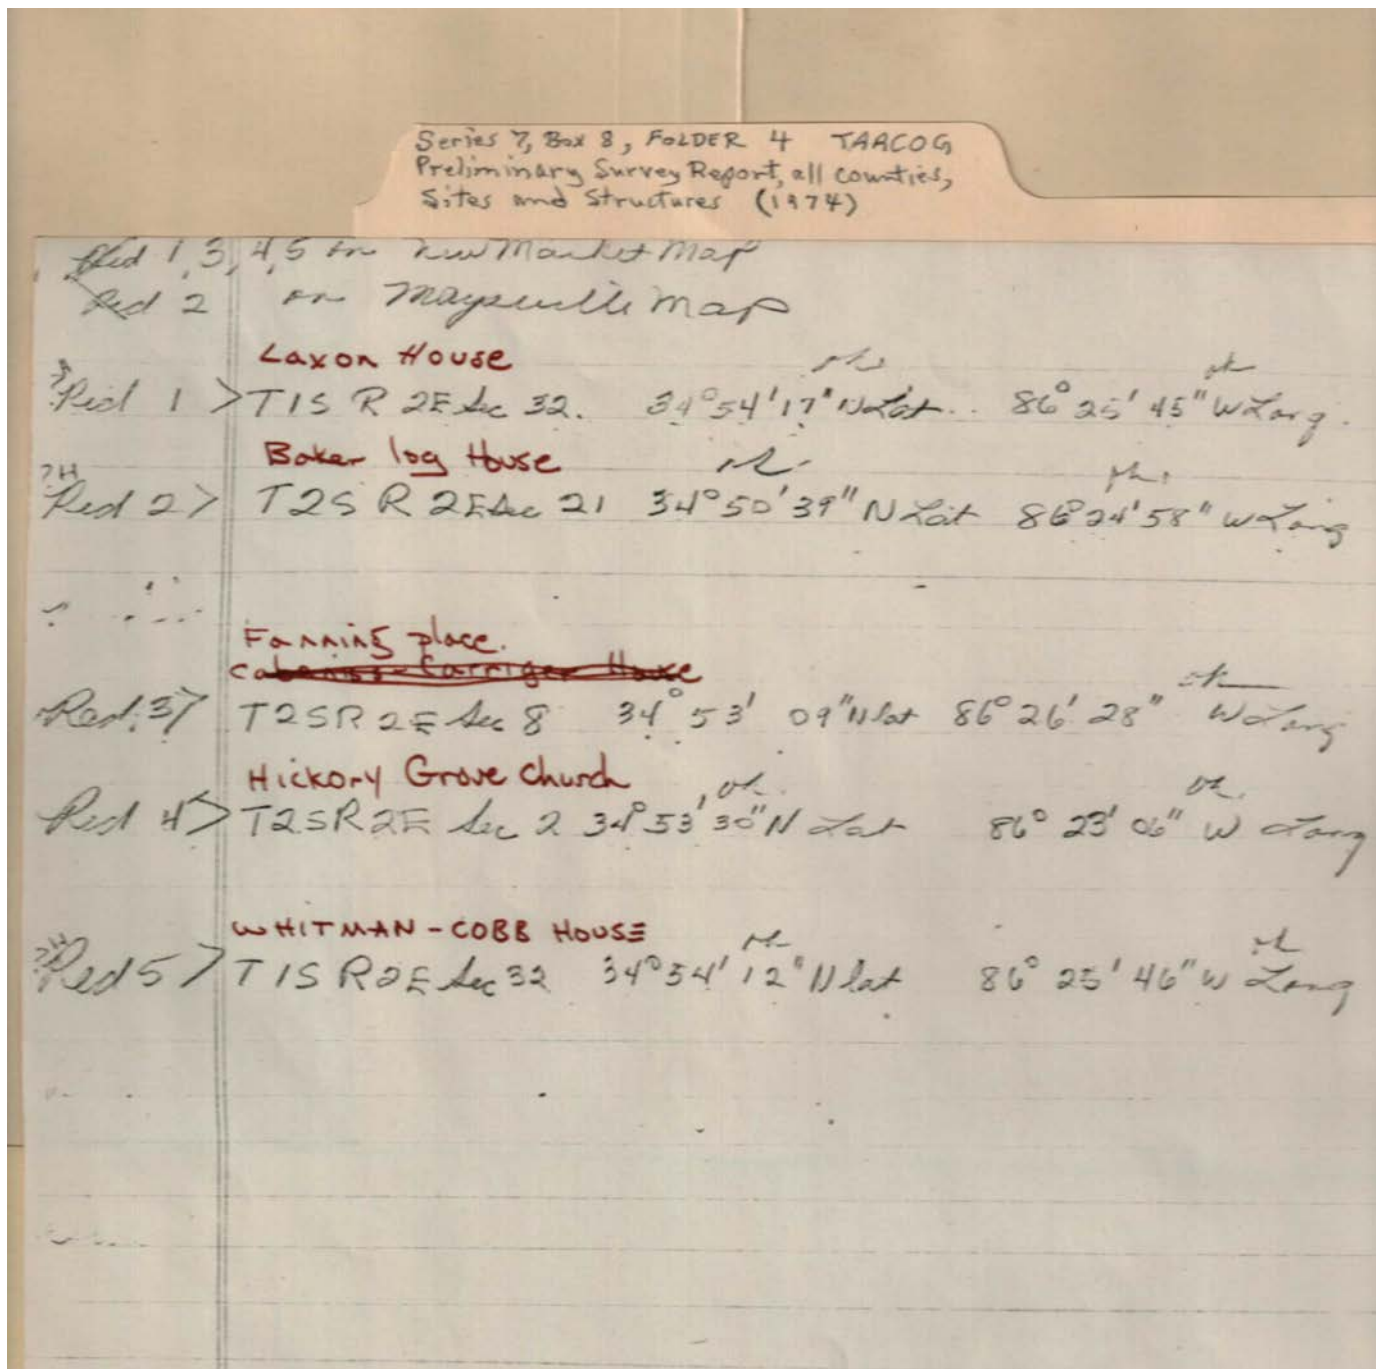 Series 7, Box 8, FOLDER 4 TARCOG
Preliminary Survey Report, all counties,
Sites and Structures (1974)
Red 1, 3, 4, 5 on New Market Map
Red 2 on Maysville Map
Laxon House
ok ok
Red 1 > T1S R 2E Sec 32. 34° 54' 17" N Lat. 86° 25' 45" W Long.
Baker log House
ok ok
Red 2 > T2S R 2E Sec 21 34° 50' 39" N Lat 86° 24' 58" W Long
Fanning place.
Cabaniss-Carriger House
ok
Red 3 > T2S R 2E Sec 8 34° 53' 09" N lat 86° 26' 28" W Long
Hickory Grove Church
ok. ok.
Red 4 > T2S R 2E Sec 2 34° 53' 30" N Lat 86° 23' 06" W Long
WHITMAN-COBB HOUSE
ok ok
Red 5 > T1S R2E Sec 32 34° 54' 12" N lat 86° 25' 46" W Long